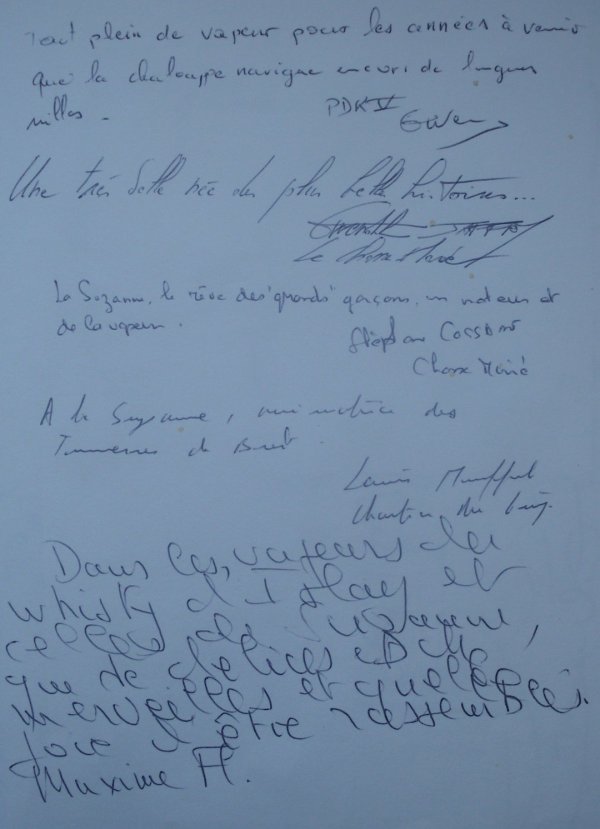 Tout plein de vapeur pour les années à venir
que la chaloupe navigue encore de longues
milles.
PDK IV
Gwen
Une très belle née des plus belle histoires...
La Suzanne, le rêve des "grands" garçons, un moteur et
de la vapeur.
Stéphane
Chasse Marée
A la Suzanne, animatrice des
Tonnerres de Brest.
Louis
Dans les vapeurs du
whisky d'Islay et
celles de Suzanne,
que de délices et de
merveilles et quelle
joie d'être rassemblés.
Maxime H.